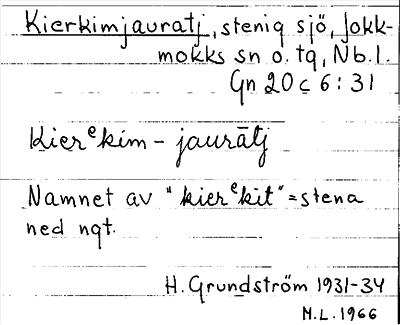 Kierkimjauratj, stenig sjö, Jokk-
mokks sn o. tg, Nb. l.
Gn 20 c 6 : 31
Kierᵉkim - jaurātj
Namnet av "kierᵉkit" = stena
ned ngt.
H. Grundström 1931-34
M.L. 1966